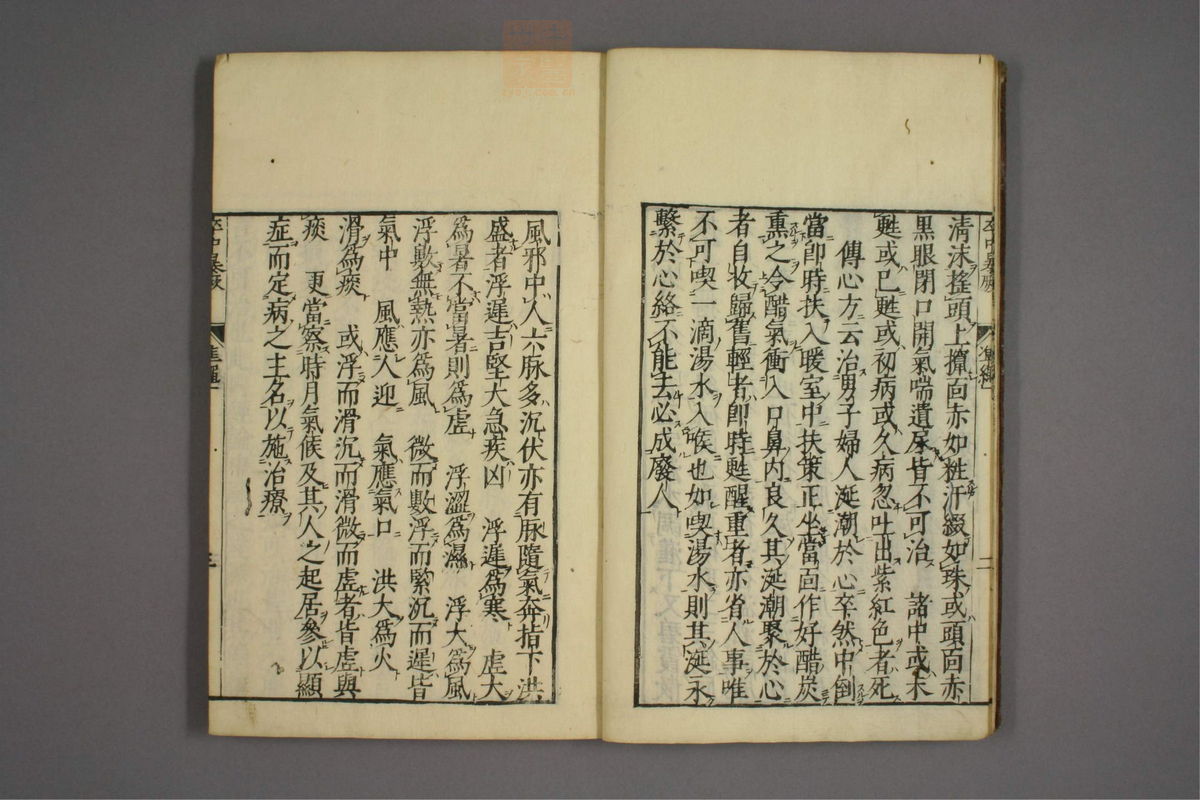 清沫搖頭上攛面赤如粧汗綴如珠或頭面赤
黒眼閉口開氣喘遺尿皆不可治　諸中或未
甦或已甦或初病或久病忽吐出紫紅色者死
傳心方云治男子婦人涎潮於心卒然中倒
當即時扶入暖室中扶策正坐當面作好醋炭
熏之令醋氣衝入口鼻内良久其涎潮聚於心
者自收歸舊輕者即時甦醒重者亦省人事唯
不可喫一滴湯水入喉也如喫湯水則其涎永
繫於心絡不能去必成廢人
二
風邪中人六脉多沉伏亦有脉隨氣奔指下洪
盛者浮遲吉堅大急疾凶　浮遲爲寒　虚大
爲暑不當暑則爲虚　浮澀爲濕　浮大爲風
浮數無熱亦爲風　微而數浮而緊沉而遲皆
氣中　風應人迎　氣應氣口　洪大爲火
滑爲痰　或浮而滑沉而滑微而虚者皆虚與
痰　更當察時月氣候及其人之起居參以顯
症而定病之主名以施治療
三